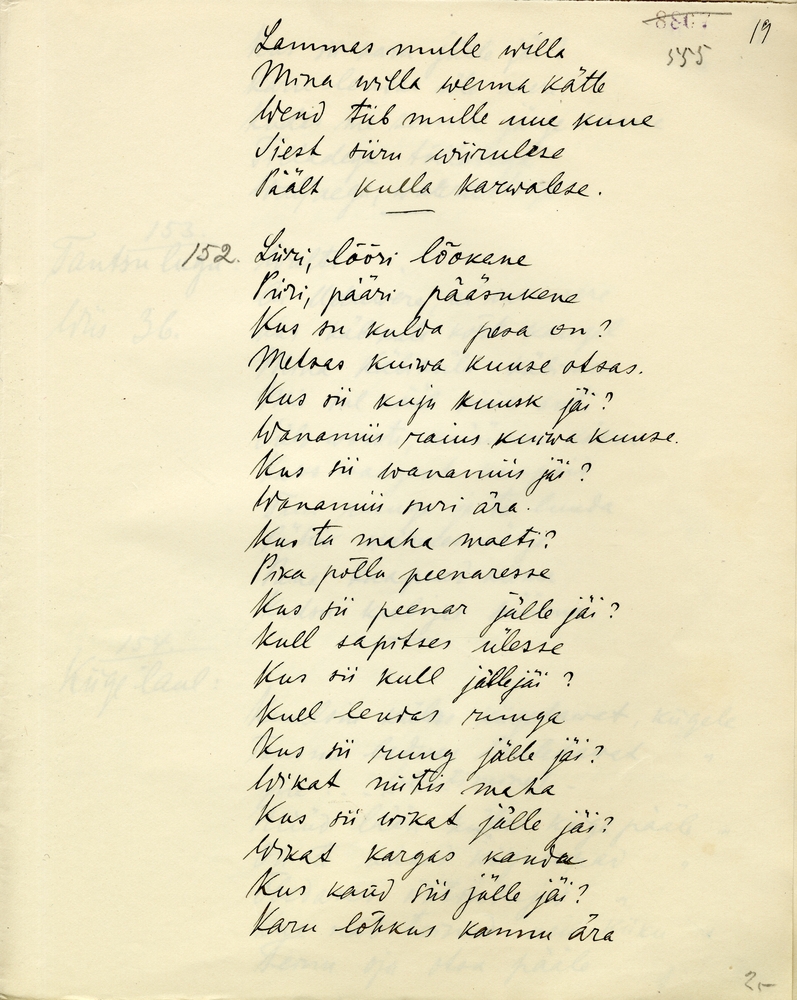 19
555
Lammas mulle willa
Mina willa wenna kätte
Wend tiib mulle uue kuue
Siest siiru wiirulese
Päält kulla karwalese.
152. Liiri, lõõri lõokene
Piiri, pääri pääsukene
Kus su kulda pesa on?
Metsas kuiwa kuuse otsas.
Kus sii kuju kuusk jäi?
Wanamiis raius kuiwa kuuse.
Kus sii wanamiis jäi?
Wanamiis suri ära.
Kus ta maha maeti?
Pika põllu peenaresse
Kus sii peenar jälle jäi?
Kull sapitses ülesse
Kus sii kull jällejäi?
Kull lendas ruuga
Kus sii ruug jälle jäi?
Wikat niitis maha
Kus sii wikat jälle jäi?
Wikat kargas kandu
Kus kand siis jälle jäi?
Karu lõhkus kannu ära
2-